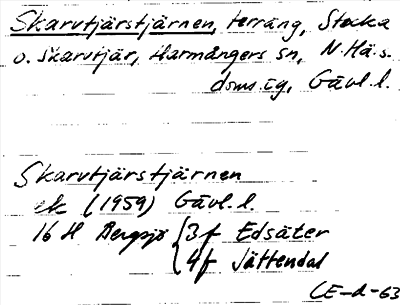 Skarvtjärstjärnen, terräng, Stocka
o. Skarvtjär, Harmångers sn, N. Hä.s.
doms.ig, Gävl.l.
Skarvtjärstjärnen
ek (1959) Gävl.l.
16 H Bergsjö 3f Edsäter
4f Jättendal
CE-d-63